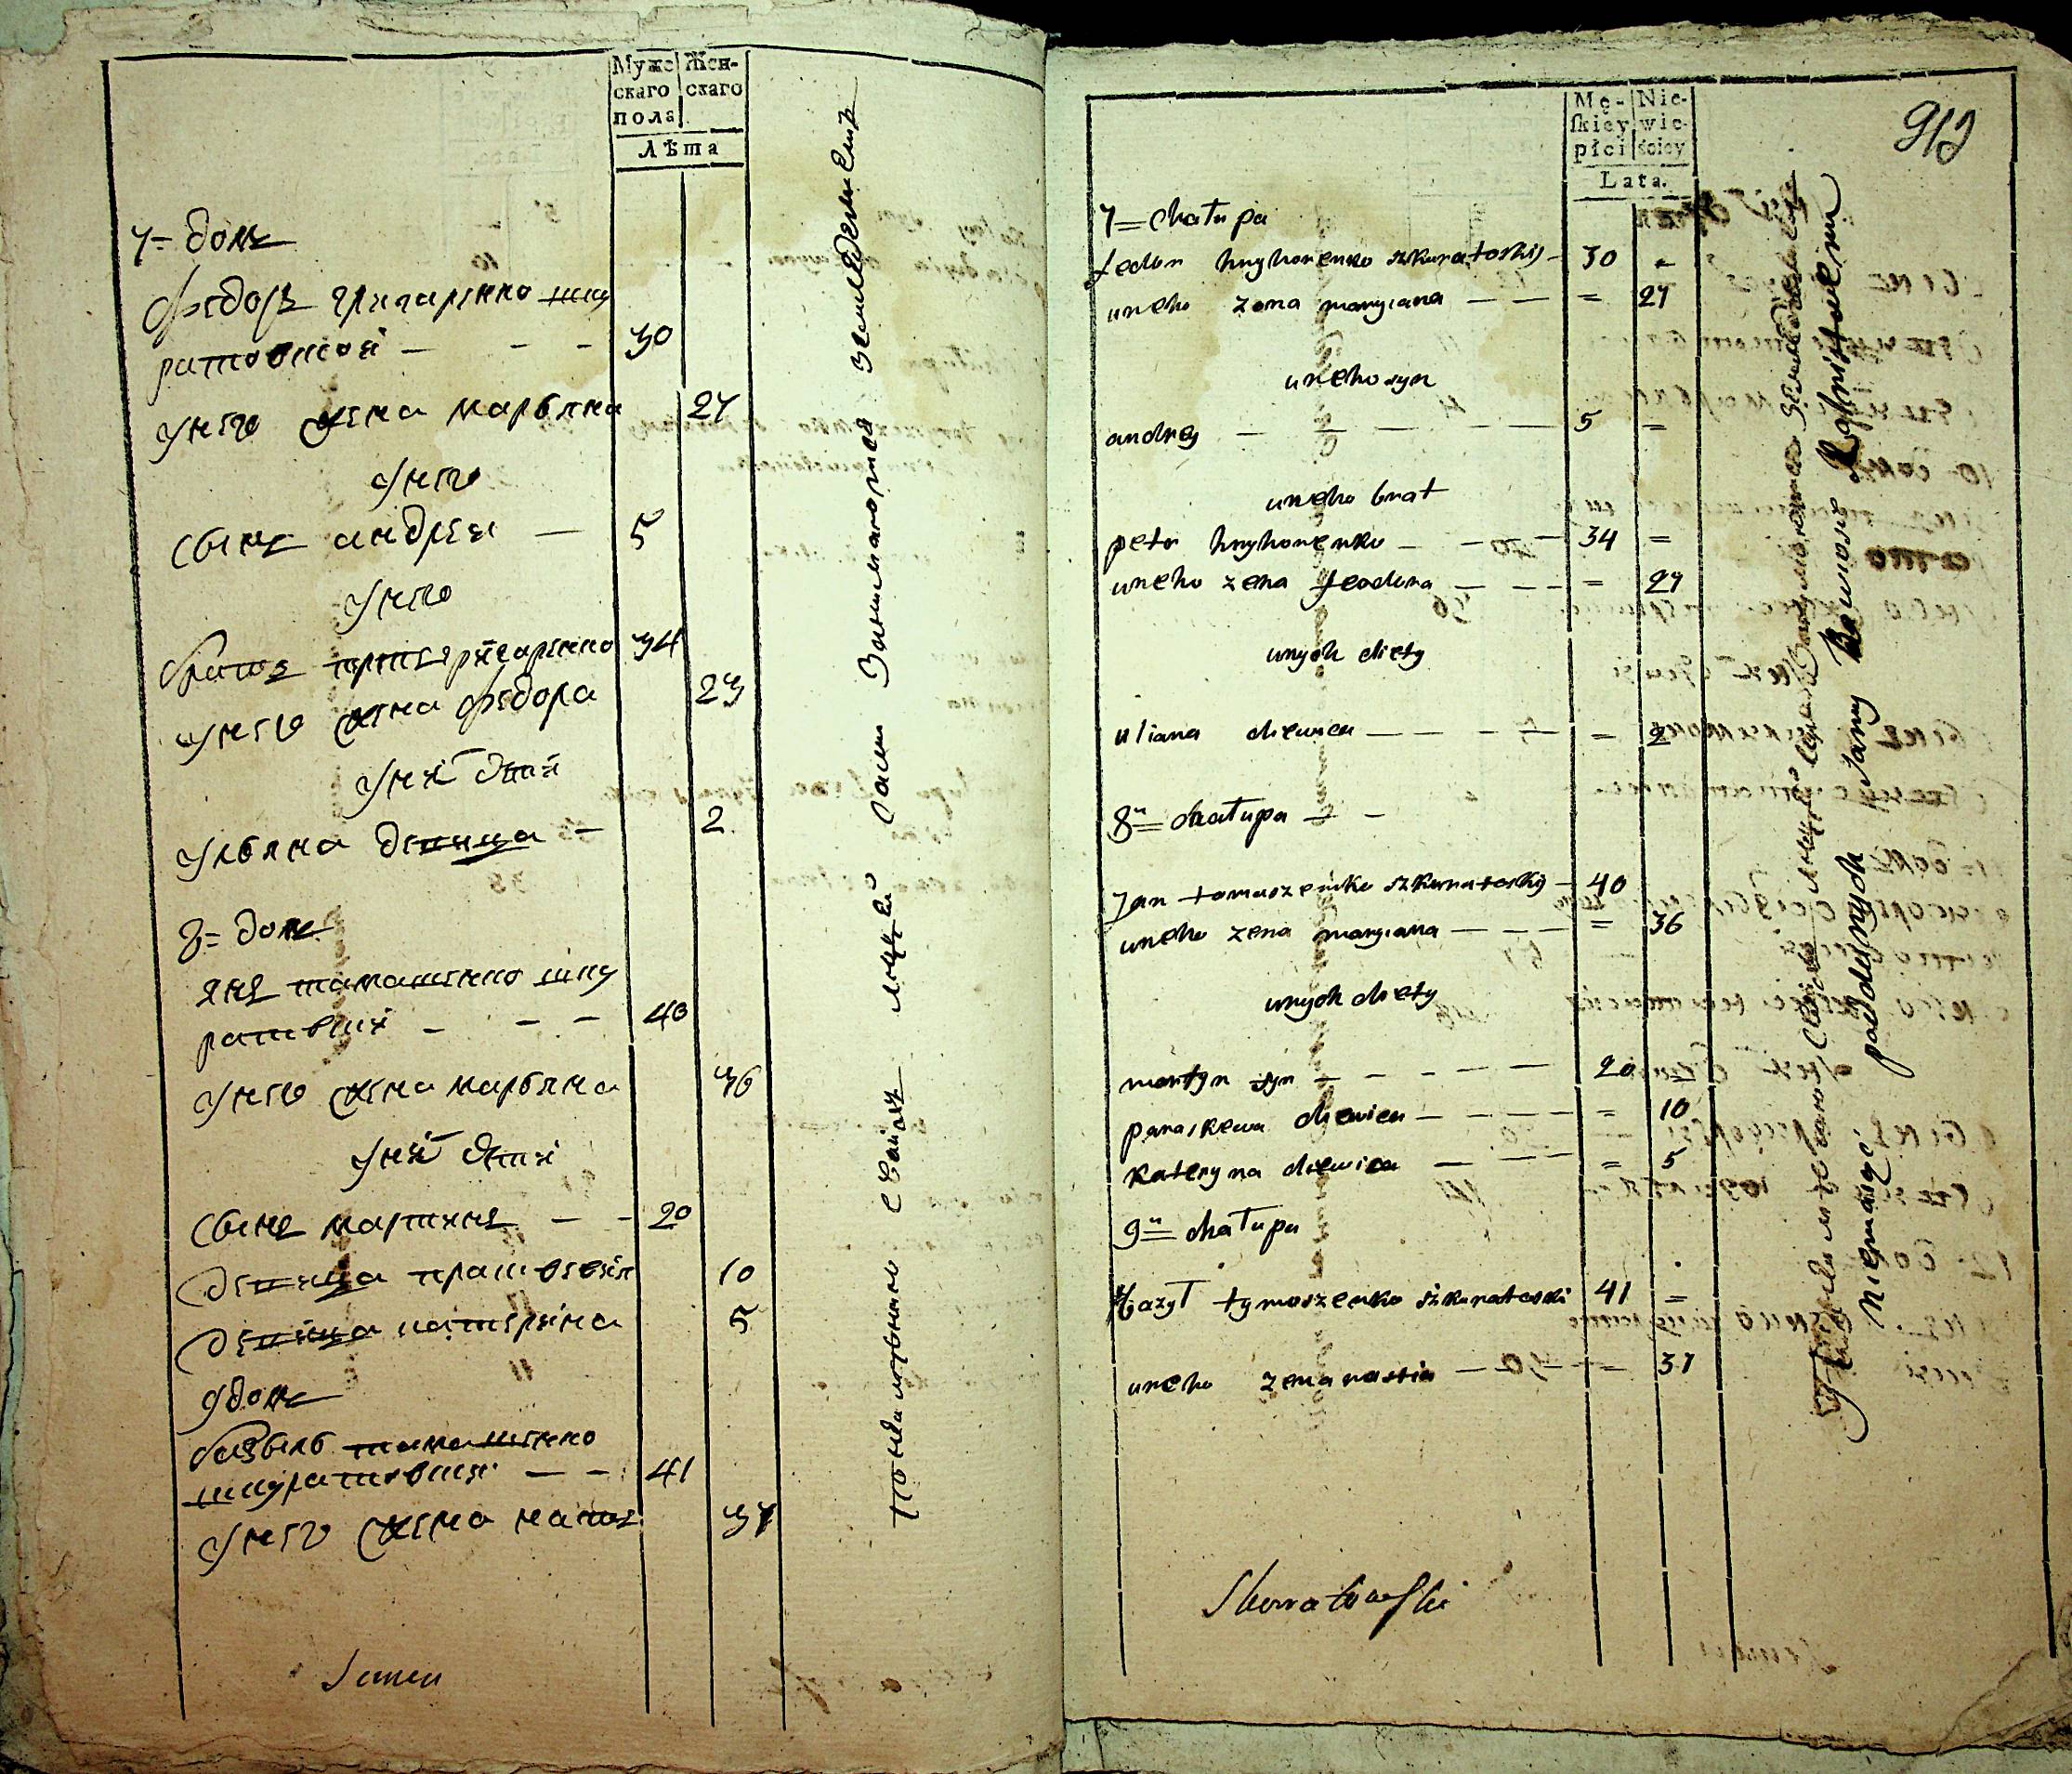 Муже
скаго
пола
Жен-
скаго
Лѣта
7= домъ
Федоръ григаренко шку
ратовской — - - 30
унего жена марьяна 27
унего
сынъ андрей — 5
унего
братъ петръ григаренко 34
унего жена федора 23
унихъ дети
ульяна девица — 2
8= домъ
янъ томашенко шку
ратовский — - - 40
унего жена марьяна 36
унихъ дети
сынъ мартинъ — - 20
девица прасковея 10
девица катерина 5
9 домъ
базыль
шкуратовский — - 41
унего жена 37
людей сами занимаются земледелиемъ
Semen
Mę-
ſkiey
płci
Nie-
wie-
ściey
Lata.
919
7= chałupa
fedor hryhorenko szkuratoskij - 30 =
uneho zona maryiana — — = 27
uneho syn
andrey — — — — 5 =
uneho brat
petr hryhorenko — — — 34 =
uneho zena feodora — — — = 27
unych diety
uliana diewica — — - — = 2
8a chałupa — -
Jan tomaszenko szkuratoskij - 40
uneho zena maryiana — — — = 36
unych diety
martyn syn — — — — 20 =
paraskewa diewica — — — = 10
kateryna diewica — — = 5
9a chałupa
Bazył tymoszenko szkuratoski 41 =
uneho zena nastia — — = 37
niemaiąc poddanych samy
Skuratowſki